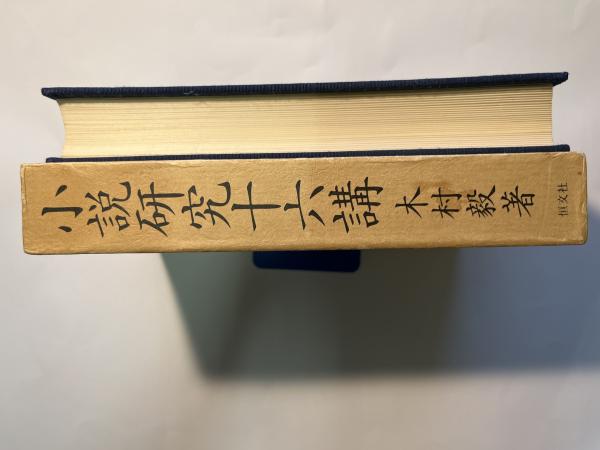 小説研究十六講
木村毅著
恒文社